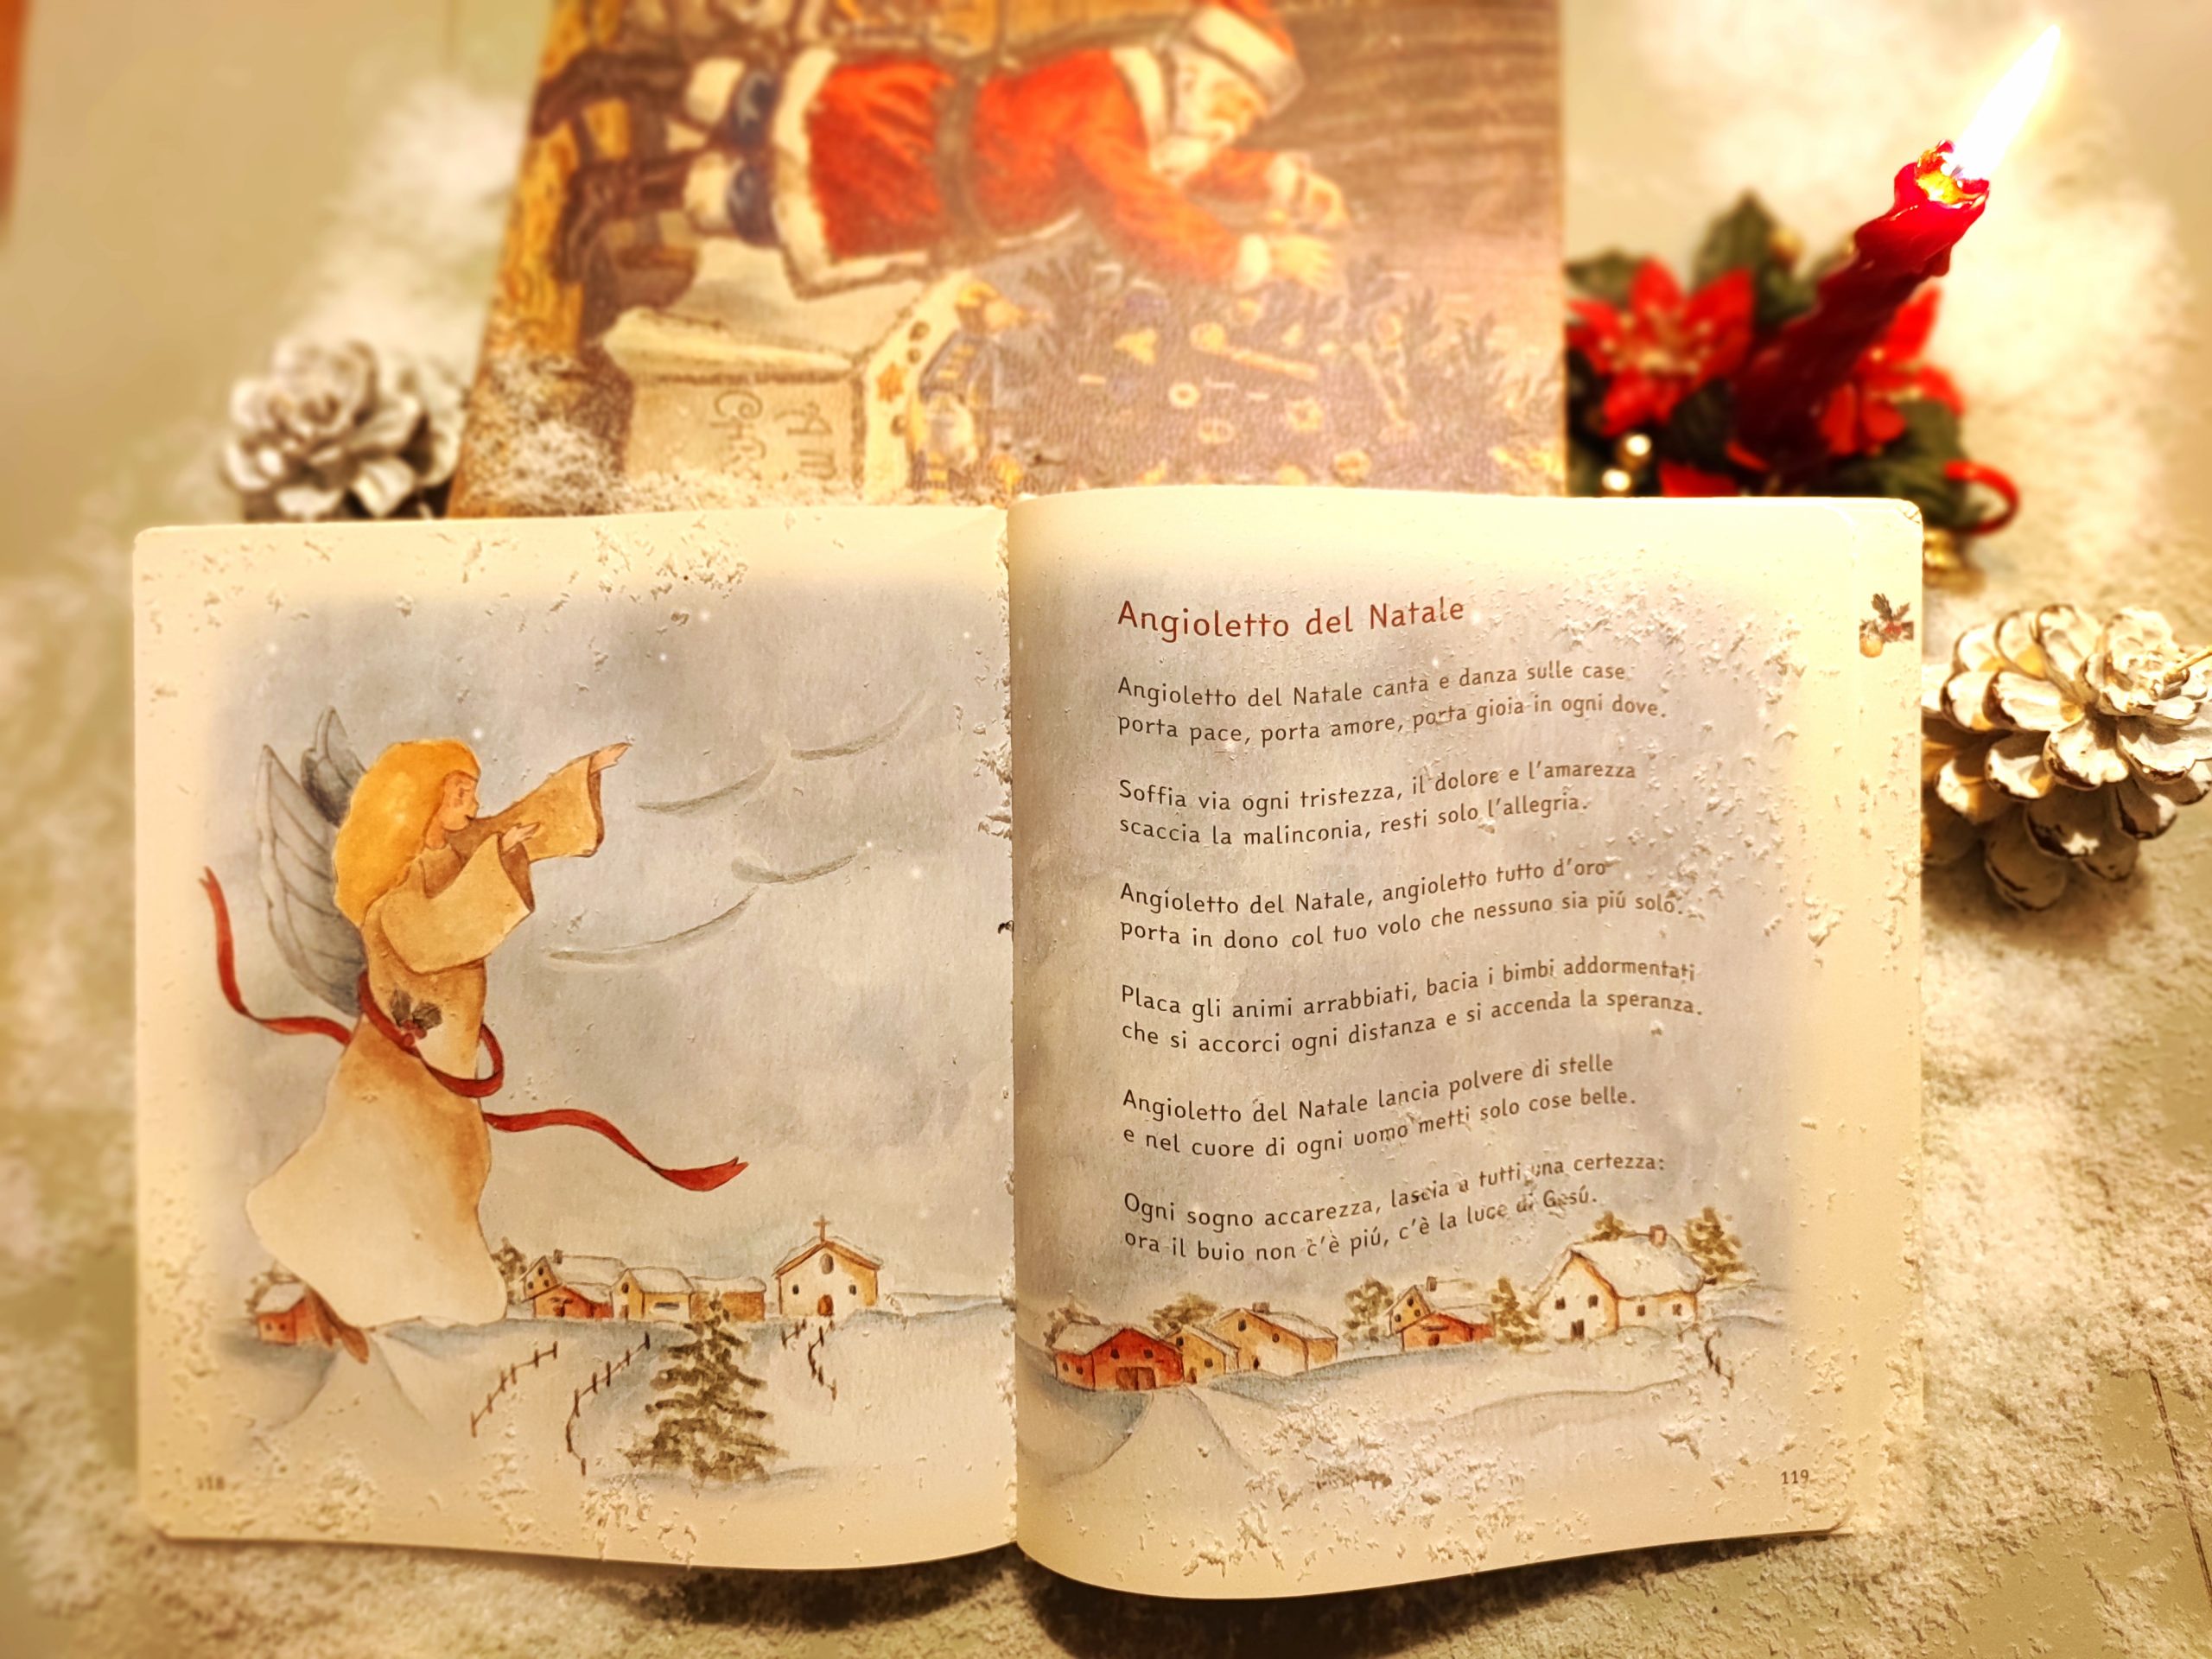 Angioletto del Natale
Angioletto del Natale canta e danza sulle case
porta pace, porta amore, porta gioia in ogni dove.
Soffia via ogni tristezza, il dolore e l'amarezza
scaccia la malinconia, resti solo l'allegria.
Angioletto del Natale, angioletto tutto d'oro
porta in dono col tuo volo che nessuno sia piú solo.
Placa gli animi arrabbiati, bacia i bimbi addormentati
che si accorci ogni distanza e si accenda la speranza.
Angioletto del Natale lancia polvere di stelle
e nel cuore di ogni uomo metti solo cose belle.
Ogni sogno accarezza, lascia a tutti una certezza:
ora il buio non c'è piú, c'è la luce di Gesú.
118
119